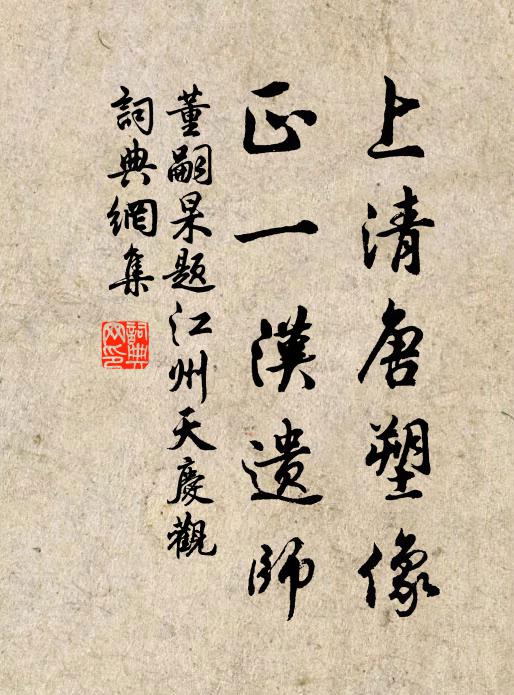 上清唐塑像
正一漢遺師
董嗣杲题江州天慶觀
詞典網集
詞典網印